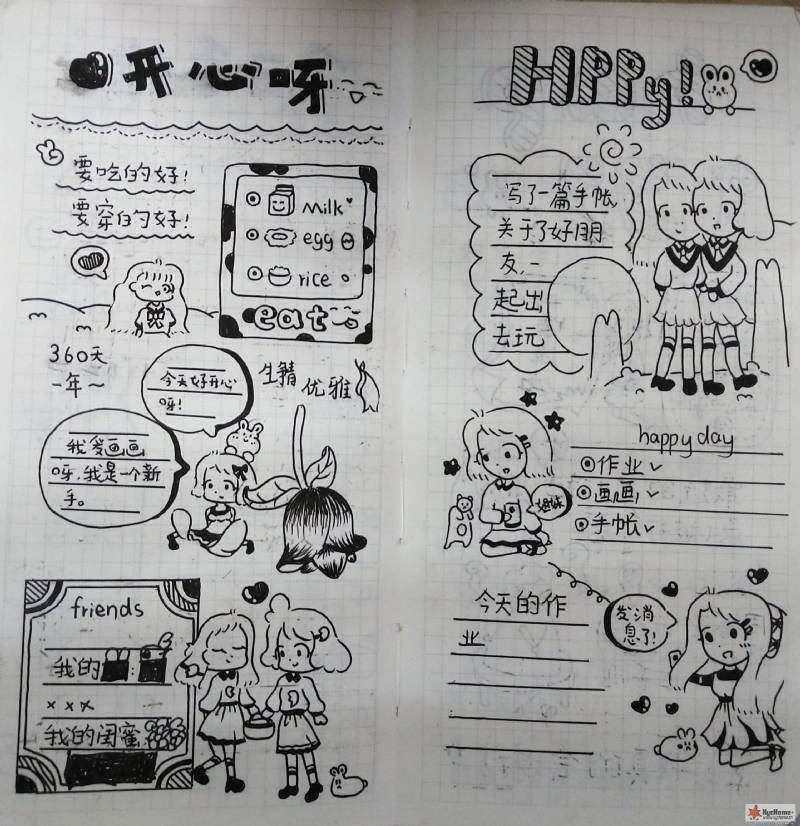 开心呀
要吃的好!
要穿的好!
milk
egg
rice
eat
360天
一年~
今天好开心
呀!
生精 优雅
我爱画画
呀,我是一个新
手。
friends
我的
×××
我的闺蜜
HPPy!
写了一篇手帐
关于了好朋
友,一
起出
去玩
happy day
作业✓
画画✓
手帐✓
姐妹
今天的作
业
发消
息了!